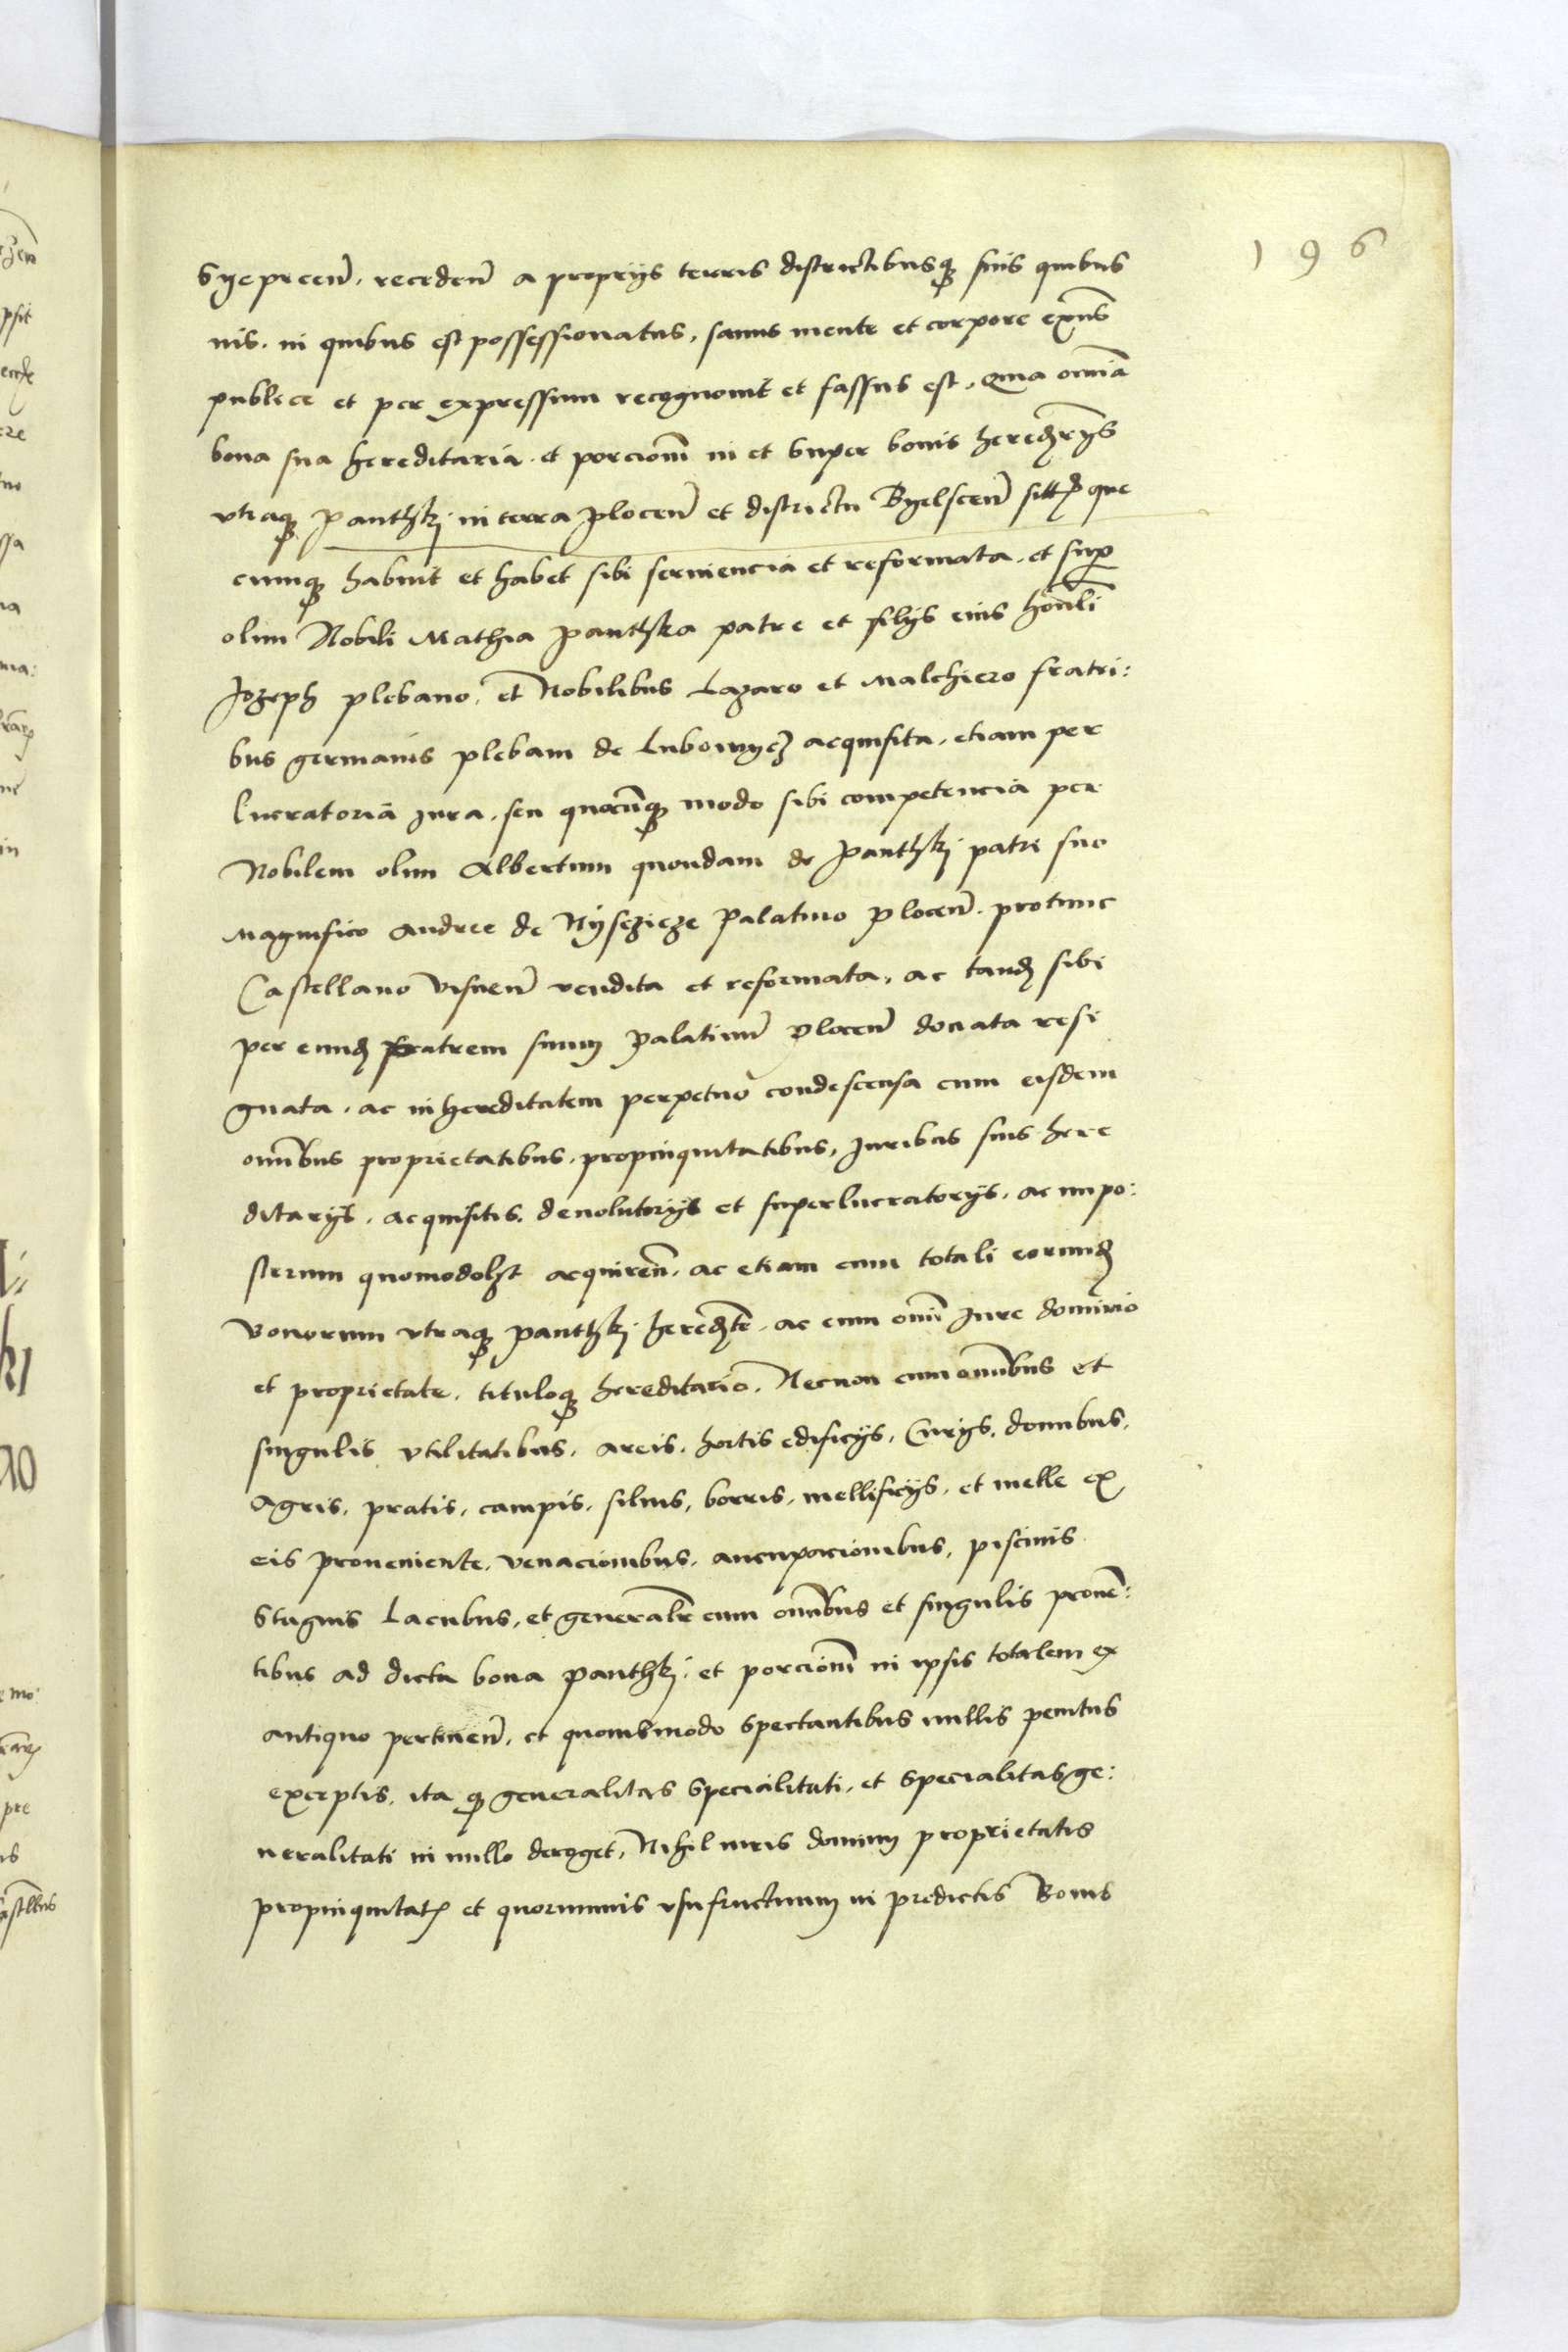 196
Syepreen̄. receden̄ a proprijs terris districtibusq̨ suis quibus
uis. in quibus est possessionatus, sanus mente et corpore exn̄s
publice et per expressum recognouit et fassus est. Quia omnia
bona sua hereditaria. et porcionē in et super bonis heredrijs
vtraq̨ panthky in terra plocen̄ et districtu Byelscen̄ sitt que
cumq̨ habuit et habet sibi seruiencia et reformata. et sup
olim Nobili Mathia panthka patre et filijs eius honli
Jozeph plebano, et Nobilibus Lazaro et Malchiero fratri:
bus germanis plebani de Lubowycz acquisita. etiam per
lucratoria jura. seu quocūq̨ modo sibi competencia per
Nobilem olim Albertum quondam de panthky patri suo
Magnifico Andree de Nysczicze palatino plocen̄. protunc
Castellano Visnen̄ vendita et reformata, ac tand sibi
per eund fratrem suum palatinū plocen̄ donata resi
gnata. ac in hereditatem perpetuo condescensa cum eisdem
omībus proprietatibus, propinquitatibus, Juribus suis here
ditarijs, acquisitis, deuolutorijs et superlucratorijs. ac inpo:
sterum quomodolzt acquiren̄. ac etiam cum totali eorund
bonorum vtraq̨ panthky heredte. ac cum omī Jure dominio
et proprietate, tituloq̨ hereditario. Necnon cum omībus et
singulis vtilitatibus, areis, hortis edificijs, Curijs, domibus,
Agris, pratis, campis, siluis, borris, mellificijs, et melle ex
eis proueniente, venacionibus, aucupacionibus, piscinis
Stagnis Lacubus, et generalr cum omībus et singulis prouē:
tibus ad dicta bona panthky et porcionē in ipsis totalem ex
antiquo pertinen̄. et quouismodo spectantibus nullis penitus
exceptis. ita q̨ generalitas specialitati. et specialitas ge:
neralitati in nullo deroget, Nihil iuris dominij proprietatis
propinquitat et quorumuis vsufructuum in predictis Bonis